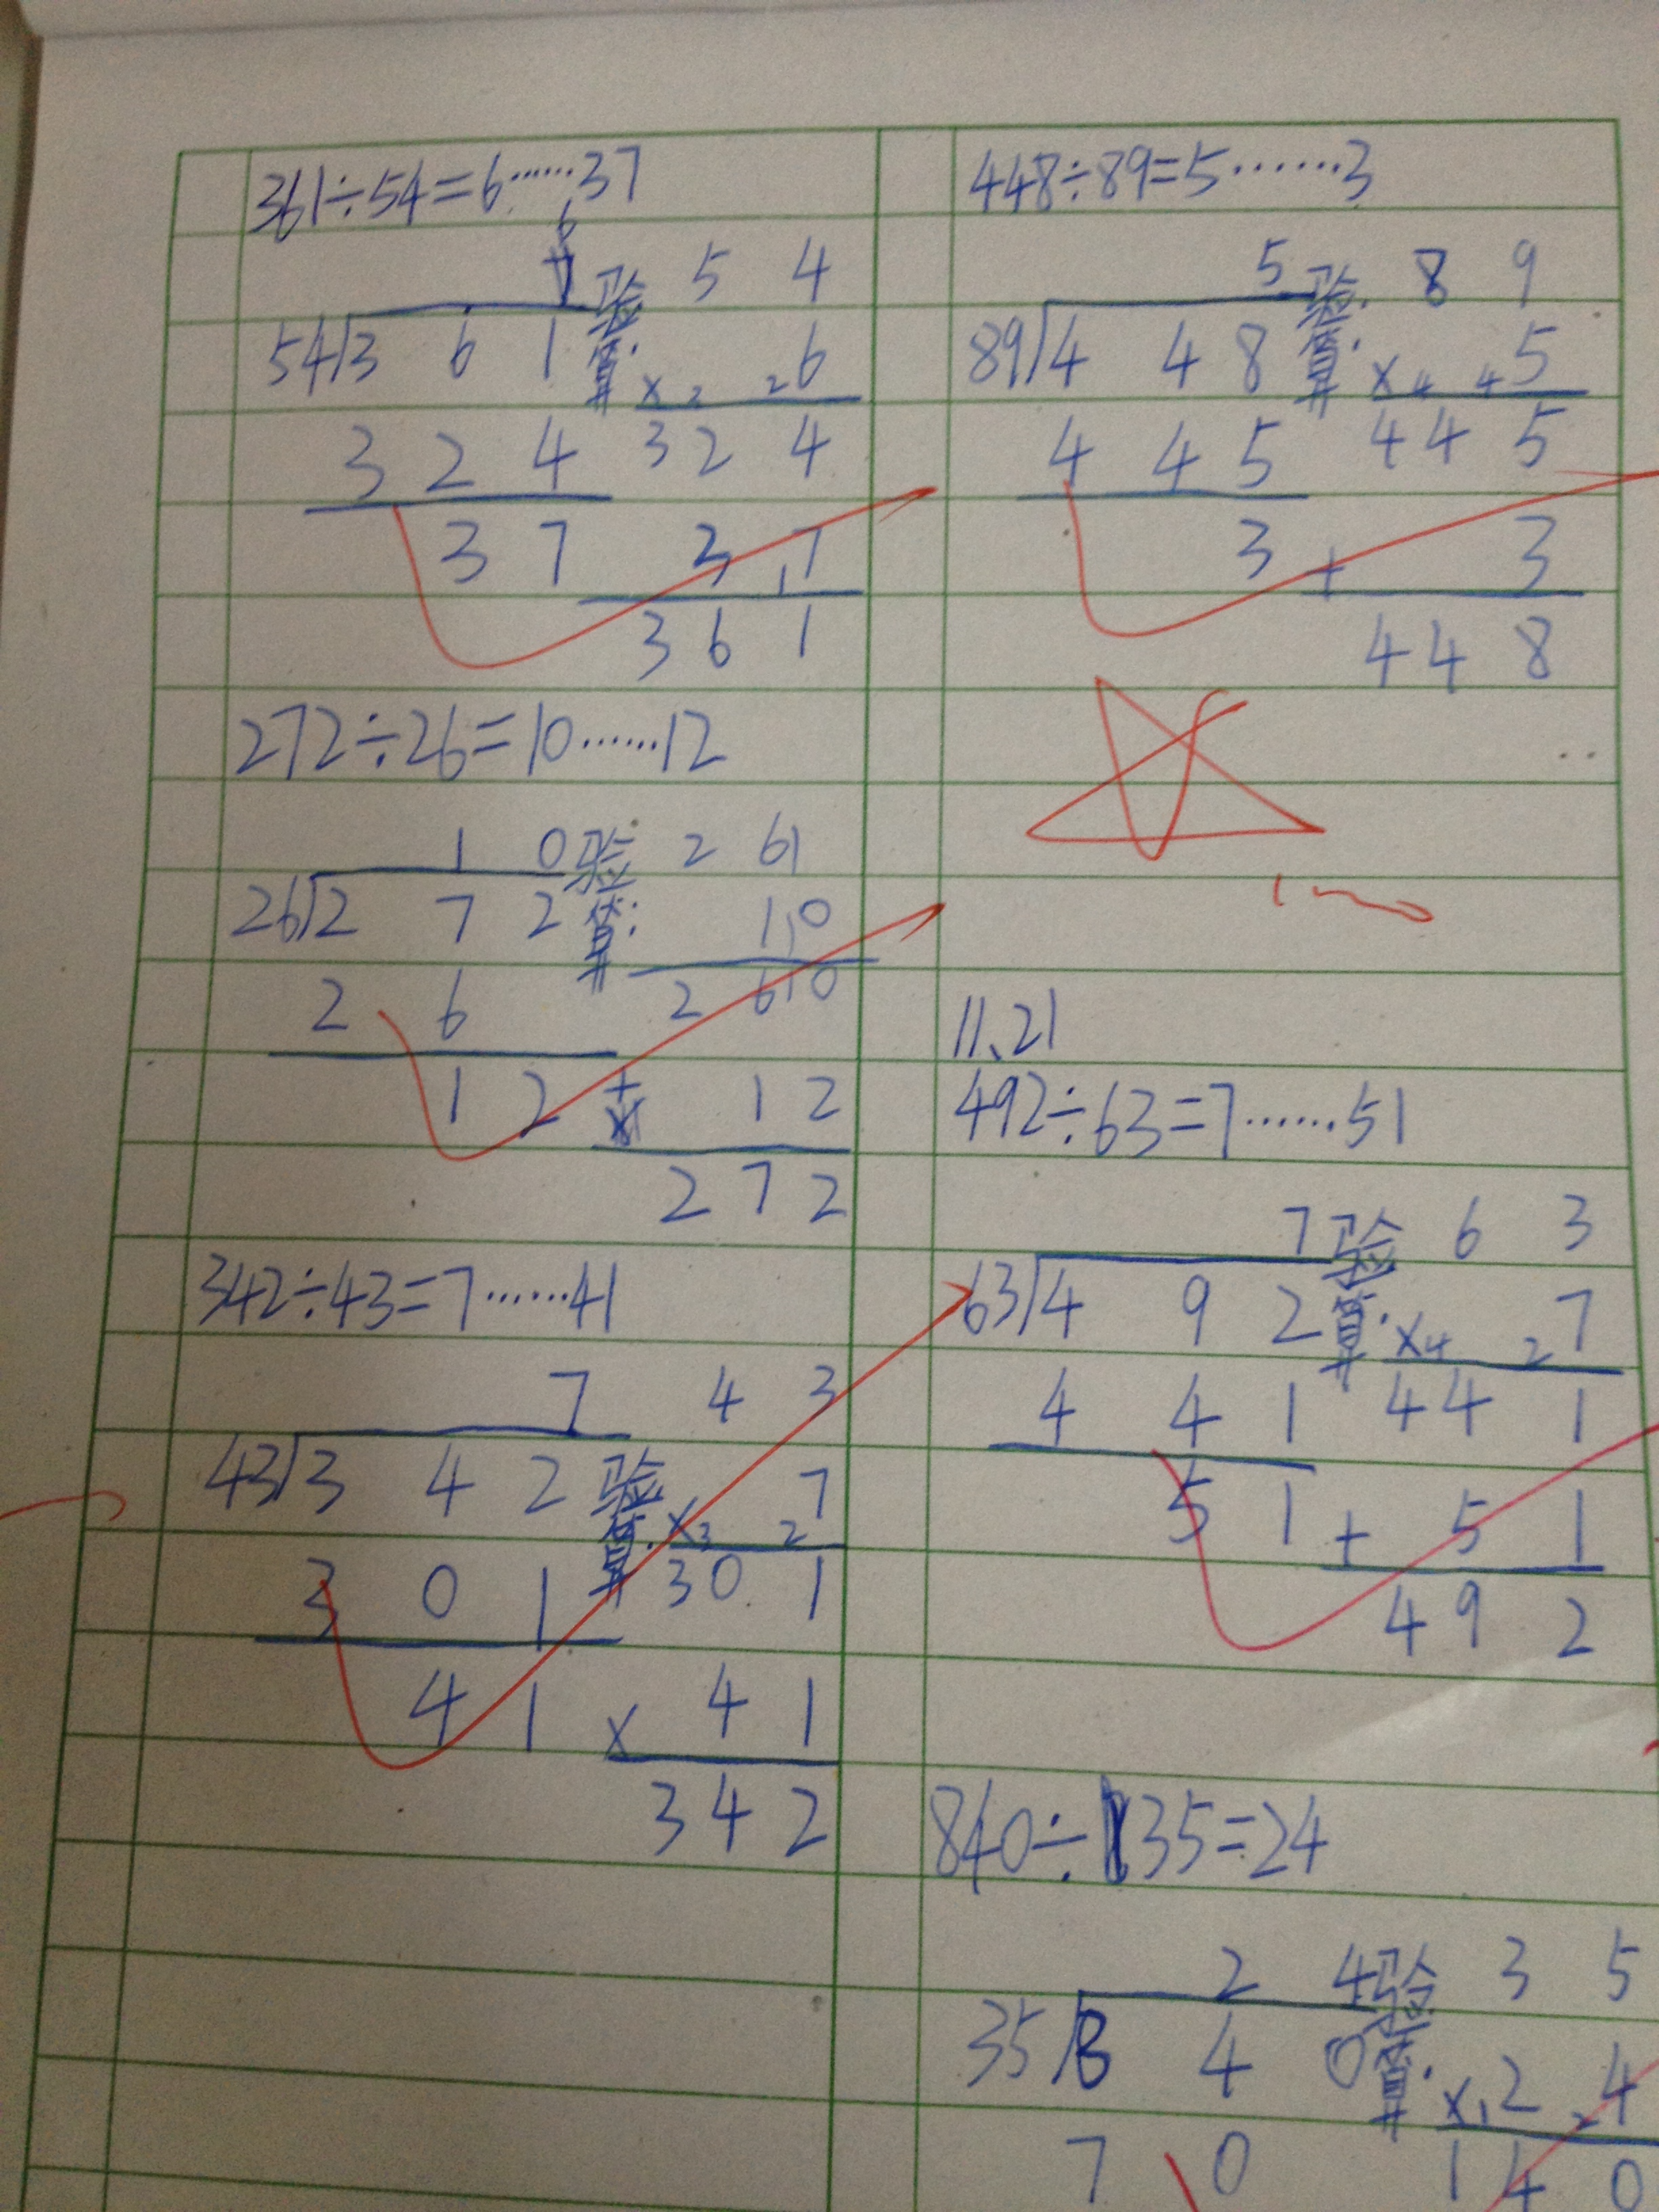 361÷54=6……37
6
验 5 4
54 3 6 1 算: × 2 2 6
3 2 4 3 2 4
3 7 3 1 7
3 6 1
272÷26=10……12
1 0 验 2 6
26 2 7 2 算: 1 0
2 6 2 6 0
1 2 + 1 2
2 7 2
342÷43=7……41
7 4 3
43 3 4 2 验 7
算: × 3 2
3 0 1 3 0 1
4 1 × 4 1
3 4 2
448÷89=5……3
5 验 8 9
89 4 4 8 算: × 4 4 5
4 4 5 4 4 5
3 + 3
4 4 8
11、21
492÷63=7……51
7 验 6 3
63 4 9 2 算: × 4 2 7
4 4 1 4 4 1
5 1 + 5 1
4 9 2
840÷35=24
2 4 验 3 5
35 8 4 0 算: × 1 2 2 4
7 0 1 4 0